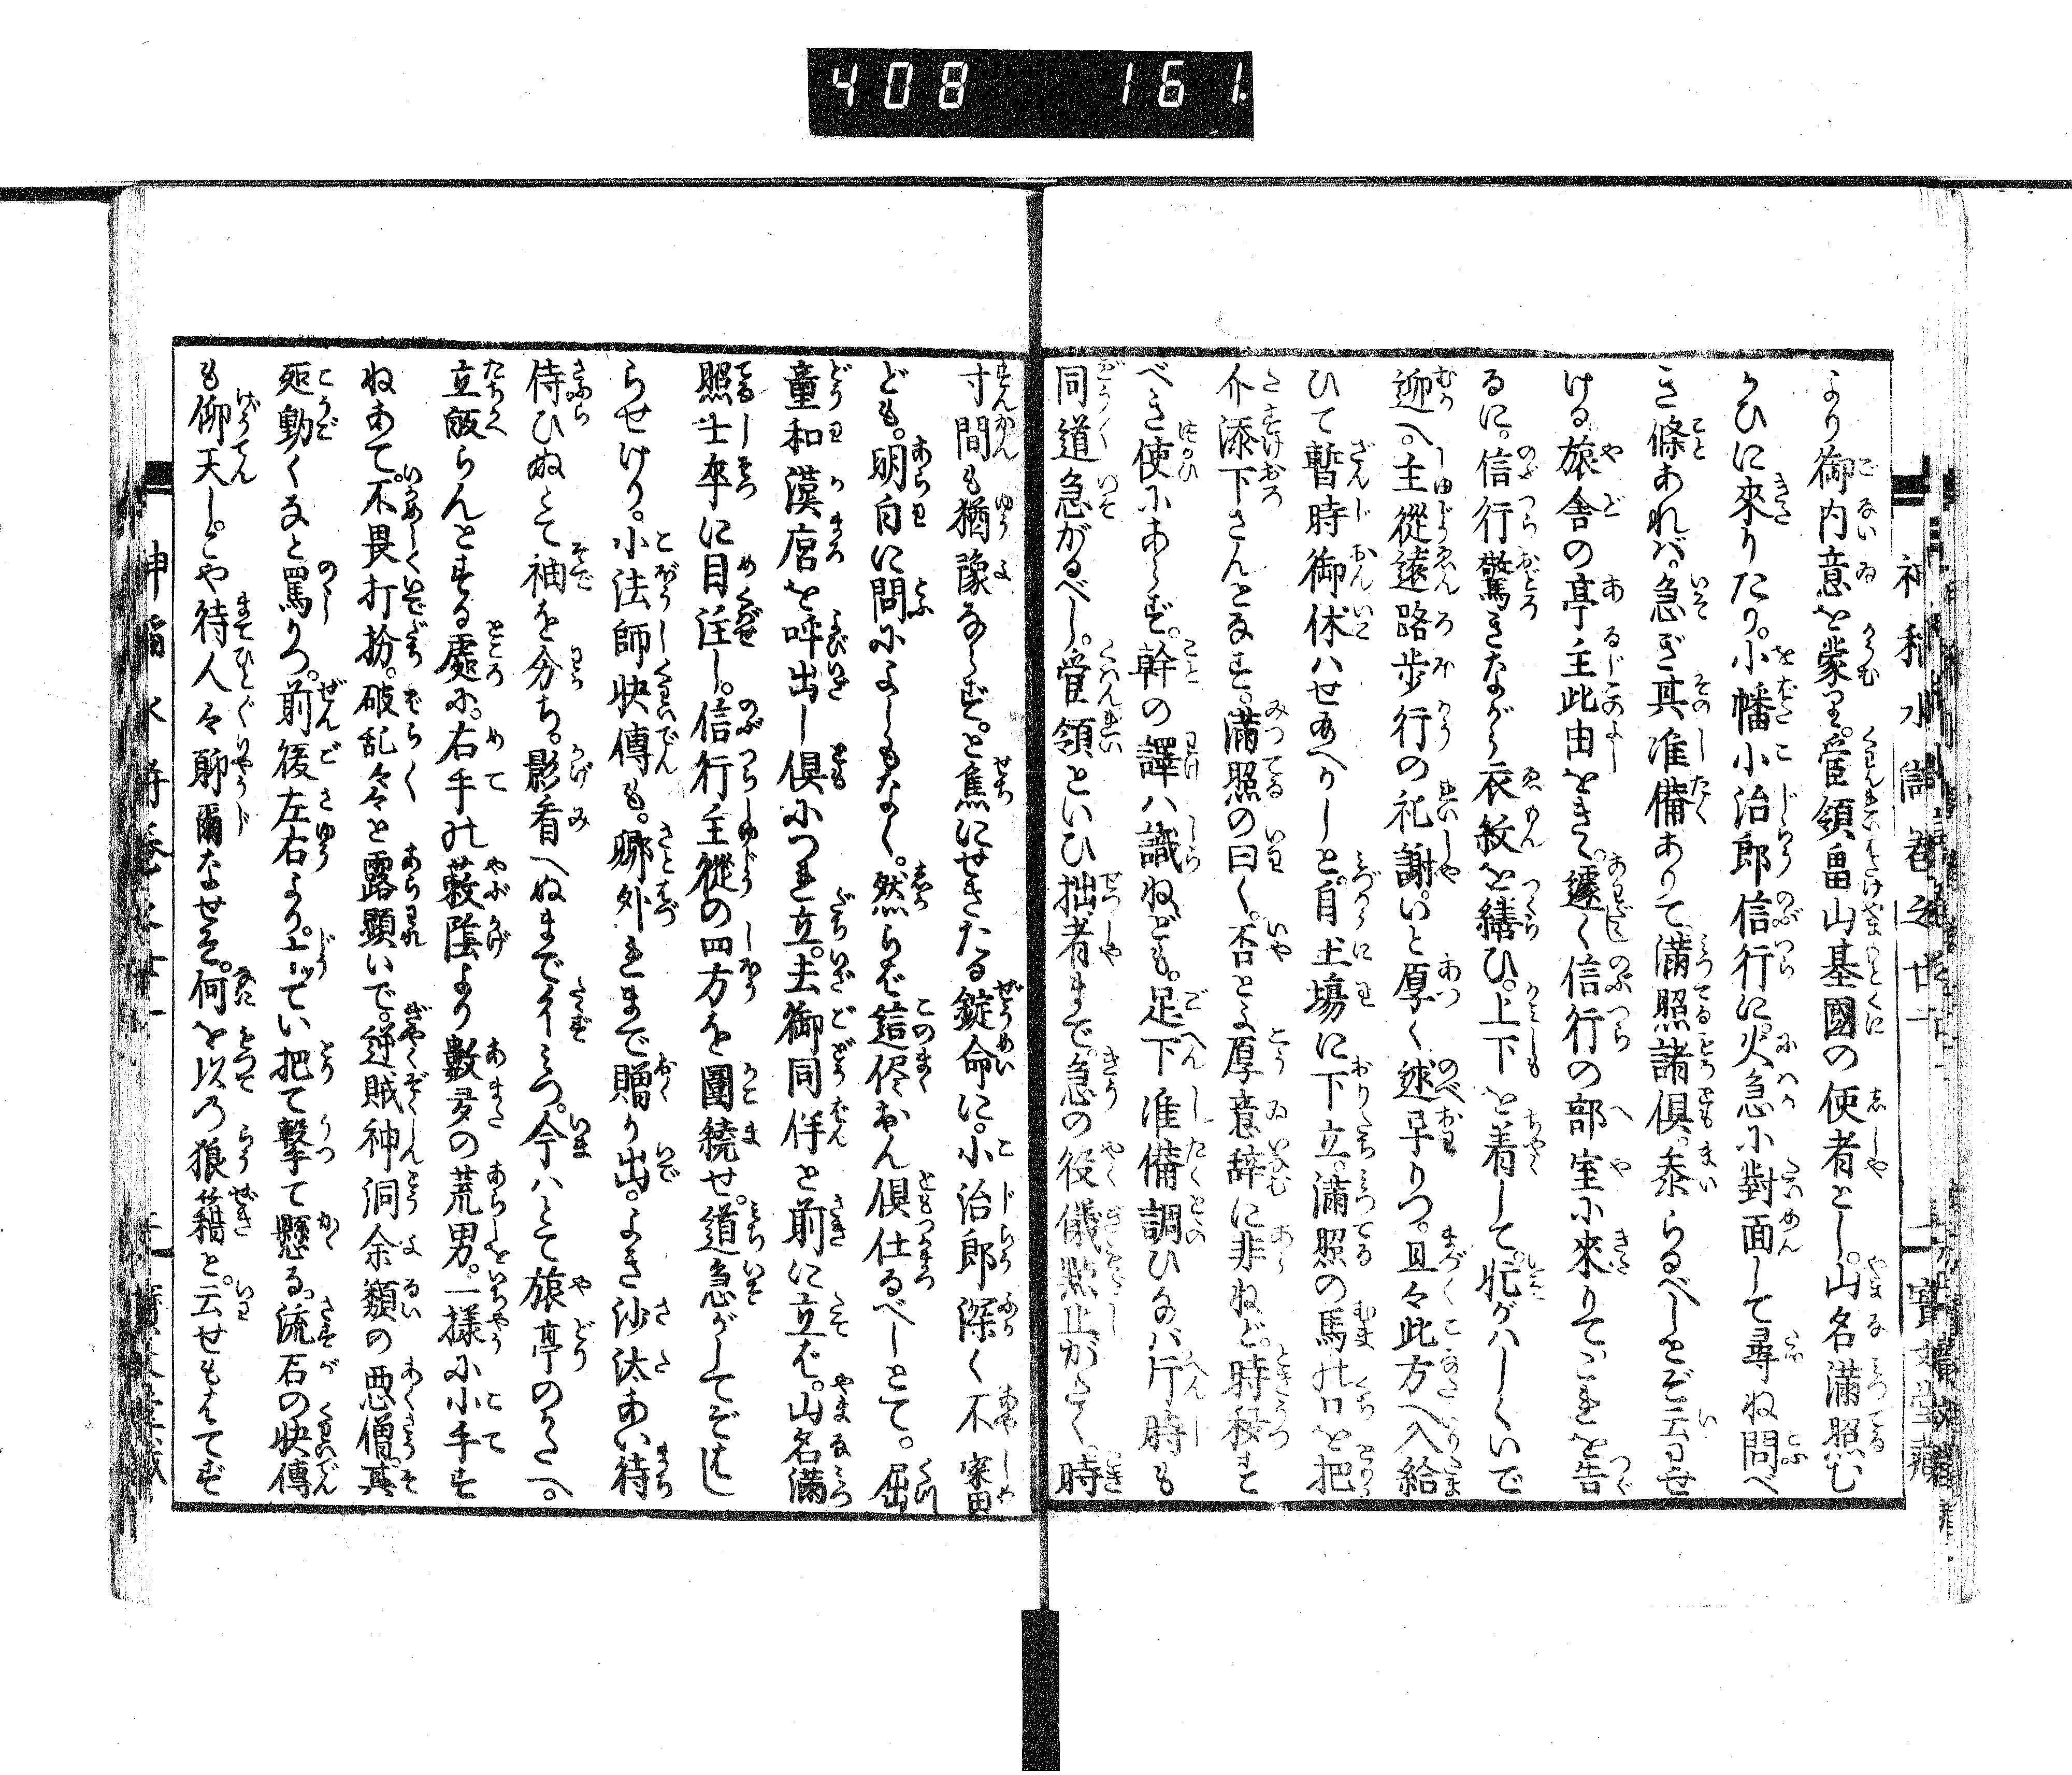 408 161
神稲水滸巻之廿一
より御内意を蒙り。管領畠山基國の使者とし。山名満照む
かひに來りたり。小幡小治郎信行に。火急に對面して尋ね問べ
き條あれバ。急ぎ其准備ありて。満照諸倶。泰らるべしとぞ云せ
ける。旅舎の亭主此由をきく。遽く信行の部室に來りて。これを告
るに。信行驚きながら衣紋を繕ひ。上下を着して。忙がハしくいで
迎へ。主從遠路歩行の礼謝。いと厚く述早りつ。且々此方へ入給
ひて暫時御休ハせあへかしと。自土塲に下立。満照の馬の口を把
介添下さんとなす。満照の曰く。否とよ厚意辞に非ねど。時移す
べき使にあらず。幹の譯ハ識ねども。足下准備調ひなバ片時も
同道急がるべし。管領といひ拙者まで。急の役儀黙止がたく。時
寸間も猶豫ならず。と焦にせきたる錠命に。小治郎深く不審
ども。明白に問によしもなく。然らバ這侭おん倶仕るべしとて。屈
童和漢麿を呼出し倶につれ立。去御同伴と前に立バ。山名満
照士卒に目注し。信行主從の四方を圍繞せ。道急がしてぞはし
らせけり。小法師快傳も。郷外れまで贈り出。よき沙汰あい待
侍ひぬとて袖を分ち。影看へぬまで彳みつ。今ハとて旅亭のかたへ。
立皈らんとする處に。右手の藪蔭より數多の荒男。一樣に小手す
ねあて。不畏打扮。破乱々々と露顕いで。逆賊神洞余類の悪僧。其
処動くなと罵りつ。前後左右より。十びてい把て撃て懸る。流石の快傳
も仰天し。とや待人々聊爾なせそ。何を以乃狼藉と。云せもはてず